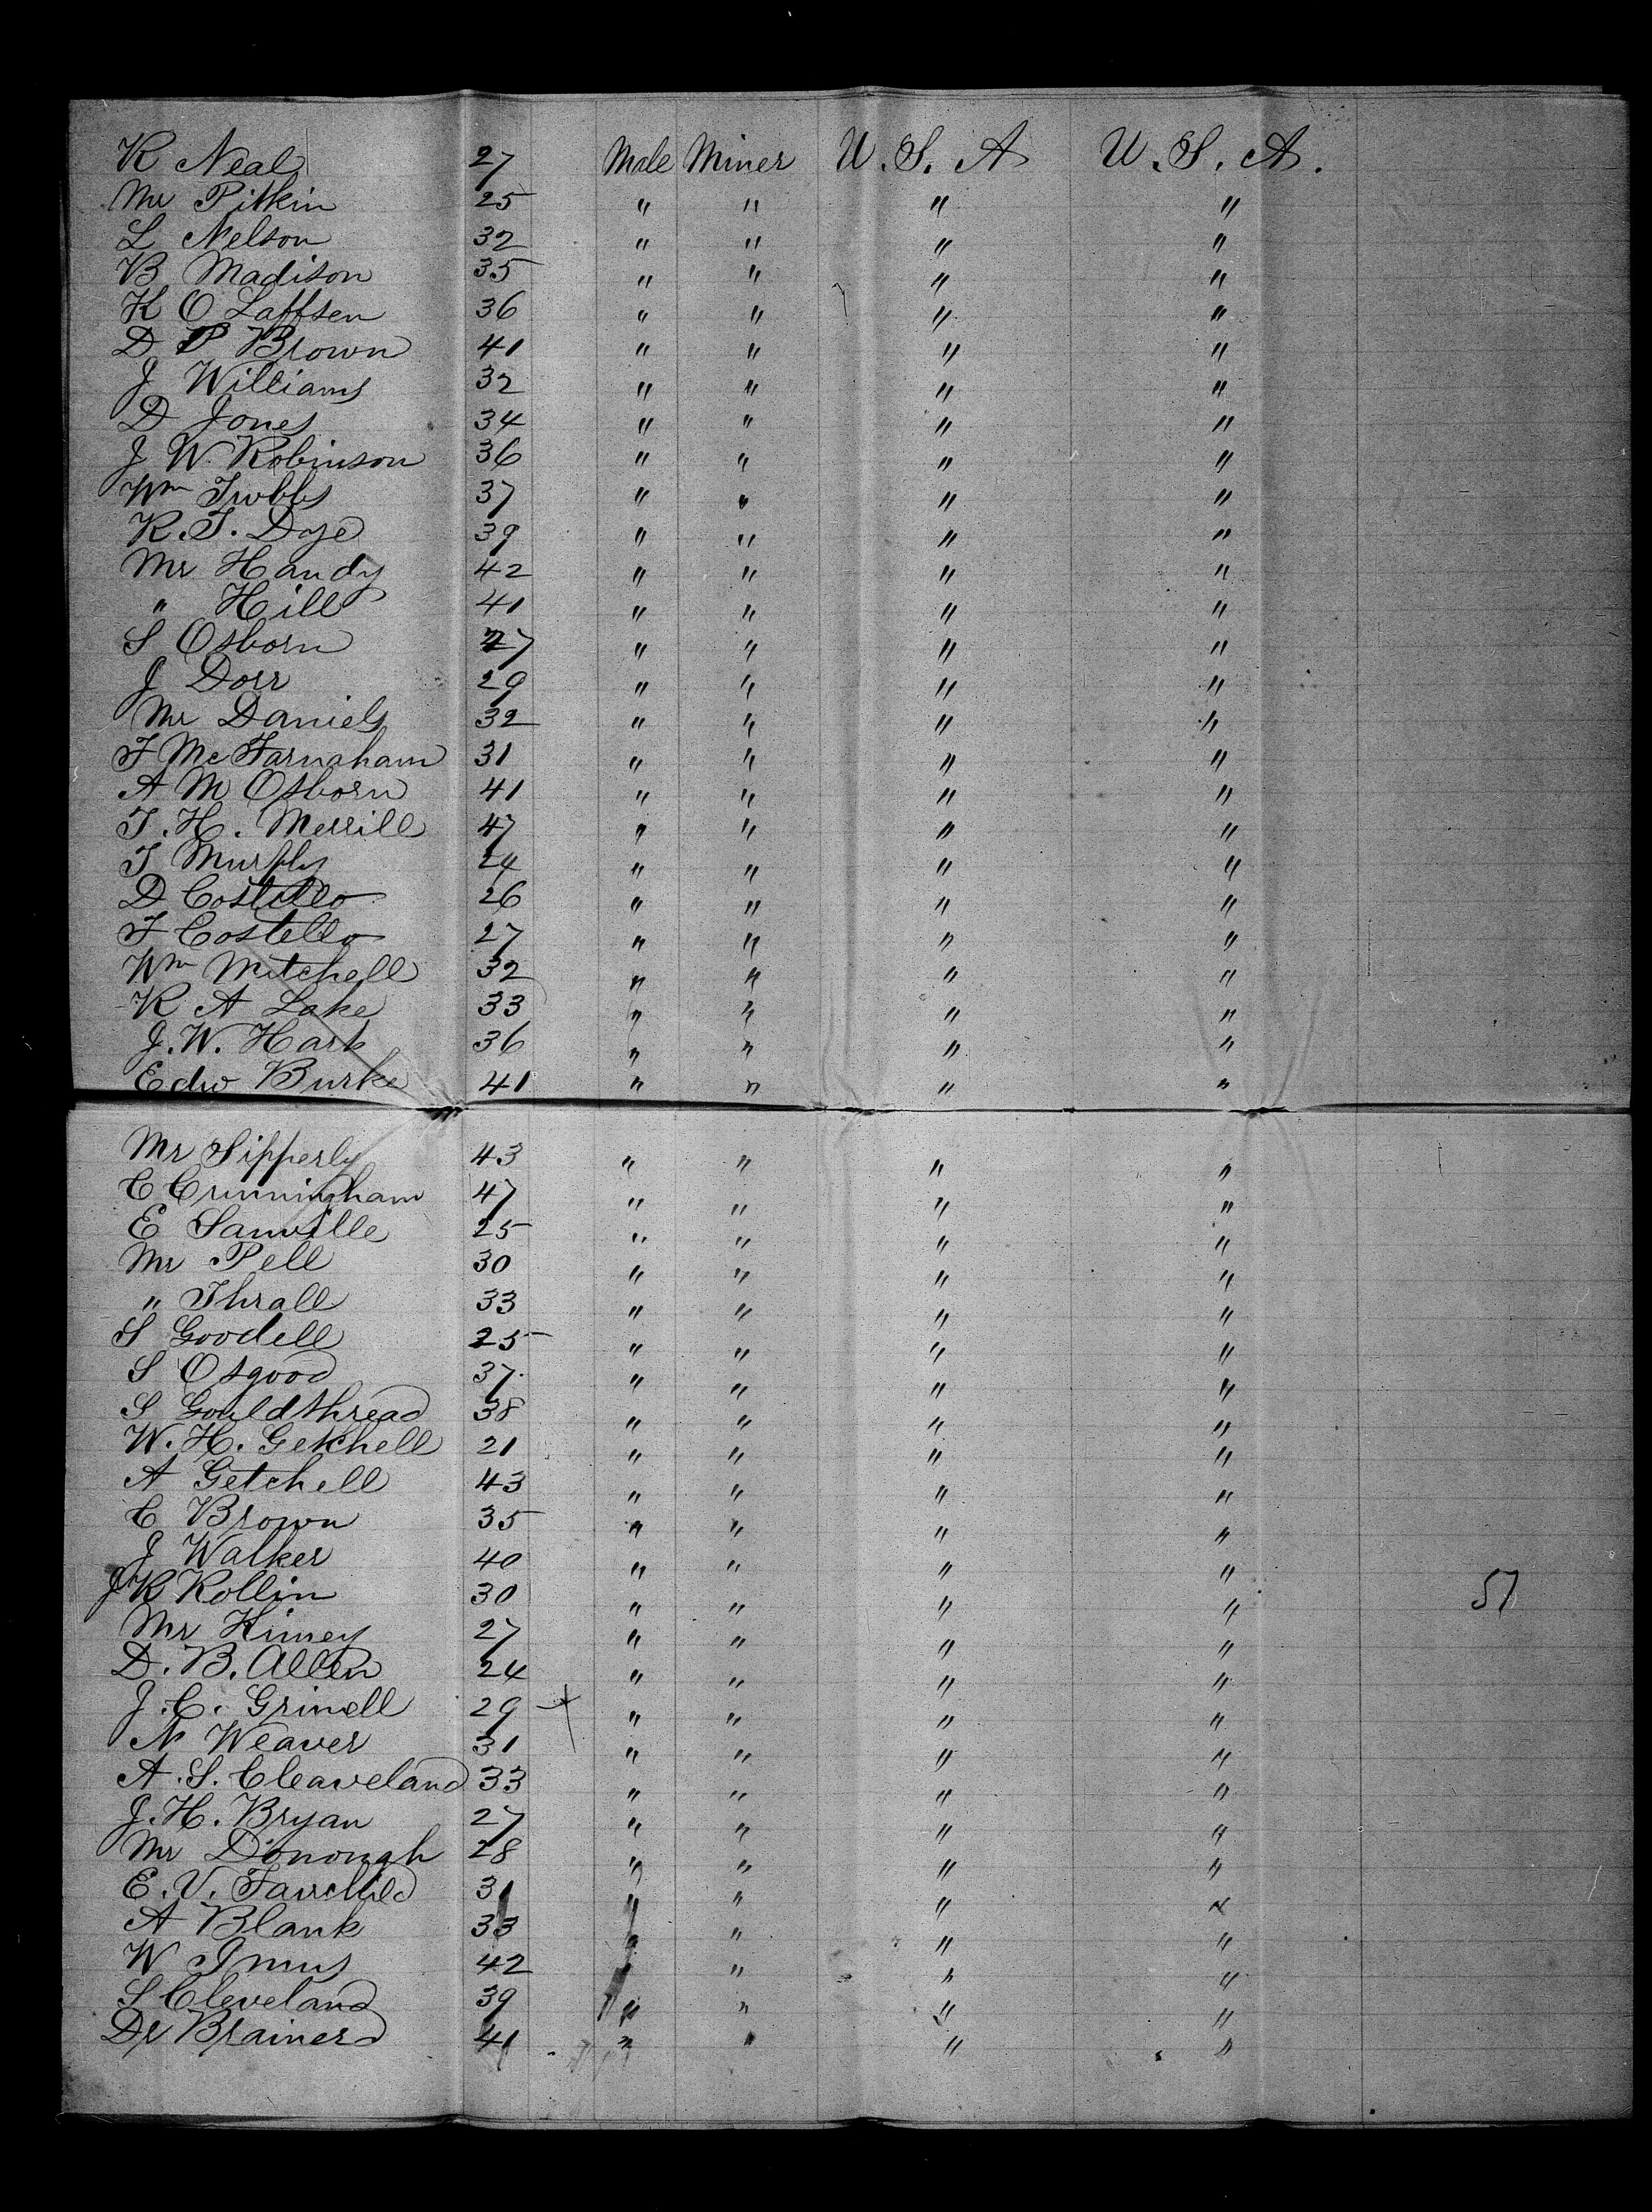 R Neal 27 Male Miner U. S. A U. S. A.
Mr Pitkin 25 " " " "
L Nelson 32 " " " "
B Madison 35 " " " "
K O Laffsen 36 " " " "
D P Brown 41 " " " "
J Williams 32 " " " "
D Jones 34 " " " "
J W Robinson 36 " " " "
Wm Tubbs 37 " " " "
R. T. Doze 39 " " " "
Mr Handy 42 " " " "
" Hill 41 " " " "
S Osborn 27 " " " "
J Dorr 29 " " " "
Mr Daniels 32 " " " "
F Mc Farnaham 31 " " " "
A M Osborn 41 " " " "
T. H. Merrill 47 " " " "
T Murphy 24 " " " "
D Costello 26 " " " "
F Costello 27 " " " "
Wm Mitchell 32 " " " "
R A Lake 33 " " " "
J. W. Hark 36 " " " "
Edw Burke 41 " " " "
Mr Sipperly 43 " " " "
C Cunningham 47 " " " "
E Sanville 25 " " " "
Mr Pell 30 " " " "
" Thrall 33 " " " "
S Goodell 25 " " " "
S Osgood 37 " " " "
S Gouldthread 38 " " " "
W. H. Getchell 21 " " " "
A Getchell 43 " " " "
C Brown 35 " " " "
J Walker 40 " " " "
J R Rollin 30 " " " " 51
Mr Kimey 27 " " " "
D. B. Allen 24 " " " "
J. C. Grinell 29 " " " "
N Weaver 31 " " " "
A. S. Cleaveland 33 " " " "
J. H. Bryan 27 " " " "
Mr Donough 28 " " " "
E. V. Fairchild 31 " " " "
A Blank 33 " " " "
W Imus 42 " " " "
S Cleveland 39 " " " "
Dr Brainerd 41 " " " "